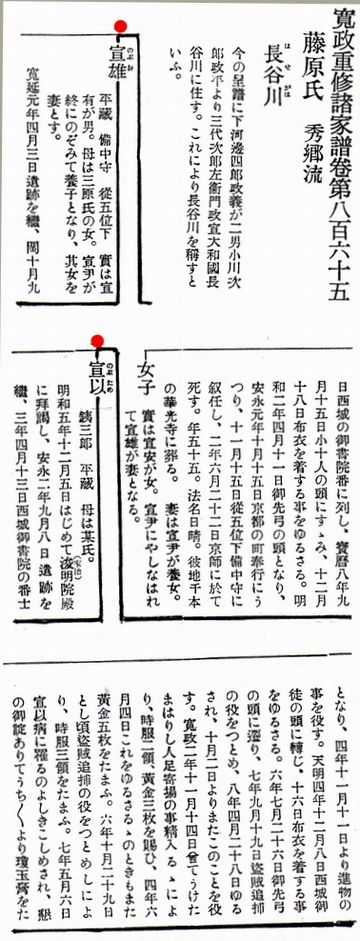 寛政重修諸家譜卷第八百六十五
藤原氏 秀郷流
長谷川
はせがは
今の呈譜に下河邊四郎政義が二男小川次
郎政平より三代次郎左衞門政宣大和國長
谷川に住す。これにより長谷川を稱すと
いふ。
宣雄
のぶお
平藏 備中守 從五位下 實は宣
有が男。母は三原氏の女。宣尹が
終にのぞみて養子となり、其女を
妻とす。
寛延元年四月三日遺跡を繼、閏十月九
日西城の御書院番に列し、寶曆八年九
月十五日小十人の頭にすゝみ、十二月
十八日布衣を着する事をゆるさる。明
和二年四月十一日御先弓の頭となり、
安永元年十月十五日京都の町奉行にう
つり、十一月十五日從五位下備中守に
叙任し、二年六月二十二日京師に於て
死す。年五十五。法名日晴。彼地千本
の華光寺に葬る。 妻は宣尹が養女。
女子
實は宣安が女。宣尹にやしなはれ
て宣雄が妻となる。
宣以
のぶため
銕三郎 平藏 母は某氏。
明和五年十二月五日はじめて浚明院殿
(家治)
に拜謁し、安永二年九月八日遺跡を
繼、三年四月十三日西城御書院の番士
となり、四年十一月十一日より進物の
事を役す。天明四年十二月八日西城御
徒の頭に轉じ、十六日布衣を着する事
をゆるさる。六年七月二十六日御先弓
の頭に遷り、七年九月十九日盜賊追捕
の役をつとめ、八年四月二十八日ゆる
され、十月二日よりまたこのことを役
す。寛政二年十一月十四日曾てうけた
まはりし人足寄場の事精入るゝによ
り、時服二領、黃金三枚を賜ひ、四年六
月四日これをゆるさるゝのときもまた
黃金五枚をたまふ。六年十月二十九日
とし頃盜賊追捕の役をつとめしによ
り、時服三領をたまふ。七年五月六日
宣以病に罹るのよしきこしめされ、懇
の御諚ありてうち〱より瓊玉膏をた